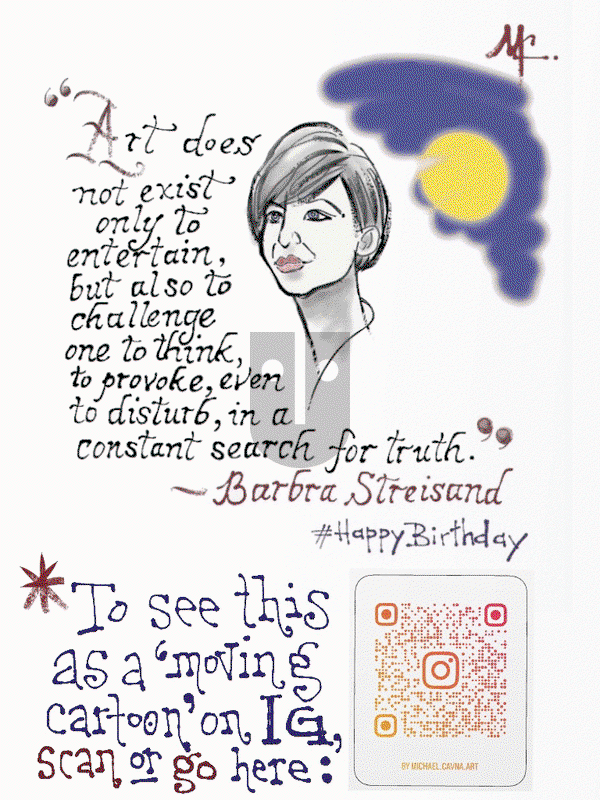 MC..
“Art does
not exist
only to
entertain,
but also to
challenge
one to think,
to provoke, even
to disturb, in a
constant search for truth.”
— Barbra Streisand
#Happy.Birthday
*To see this
as a ‘moving
cartoon’ on IG,
scan or go here:
BY MICHAEL.CAVNA.ART